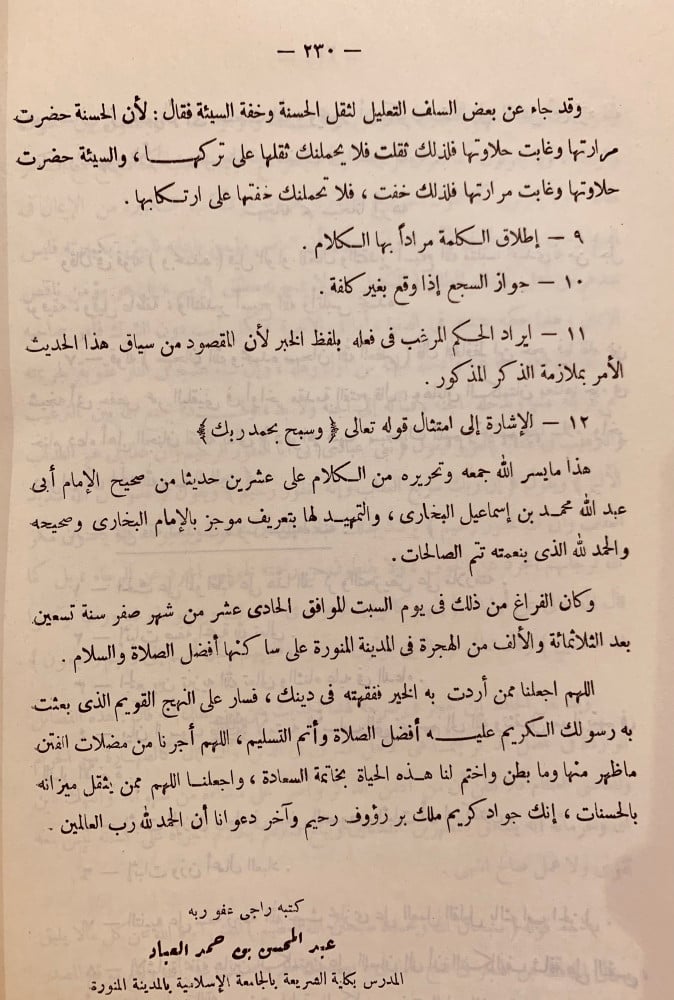 — ٢٣٠ —
وقد جاء عن بعض السلف التعليل لثقل الحسنة وخفة السيئة فقال : لأن الحسنة حضرت
مرارتها وغابت حلاوتها فلذلك ثقلت فلا يحملنك ثقلها على تركها ، والسيئة حضرت
حلاوتها وغابت مرارتها فلذلك خفت ، فلا تحملنك خفتها على ارتكابها .
٩ — إطلاق الكلمة مراداً بها الكلام .
١٠ — جواز السجع إذا وقع بغير كلفة .
١١ — ايراد الحكم المرغب فى فعله بلفظ الخبر لأن المقصود من سياق هذا الحديث
الأمر بملازمة الذكر المذكور .
١٢ — الإشارة إلى امتثال قوله تعالى ﴿ وسبح بحمد ربك ﴾
هذا مايسر الله جمعه وتحريره من الكلام على عشرين حديثا من صحيح الإمام أبى
عبد الله محمد بن إسماعيل البخارى ، والتمهيد لها بتعريف موجز بالإمام البخارى وصحيحه
والحمد لله الذى بنعمته تتم الصالحات .
وكان الفراغ من ذلك فى يوم السبت الموافق الحادى عشر من شهر صفر سنة تسعين
بعد الثلاثمائة والألف من الهجرة فى المدينة المنورة على ساكنها أفضل الصلاة والسلام .
اللهم اجعلنا ممن أردت به الخير ففقهته فى دينك ، فسار على النهج القويم الذى بعثت
به رسولك الكريم عليه أفضل الصلاة وأتم التسليم ، اللهم أجرنا من مضلات الفتن
ماظهر منها وما بطن واختم لنا هذه الحياة بخاتمة السعادة ، واجعلنا اللهم ممن يثقل ميزانه
بالحسنات ، إنك جواد كريم ملك بر رؤوف رحيم وآخر دعوانا أن الحمد لله رب العالمين .
كتبه راجى عفو ربه
عبد المحسن بن حمد العباد
المدرس بكلية الشريعة بالجامعة الإسلامية بالمدينة المنورة